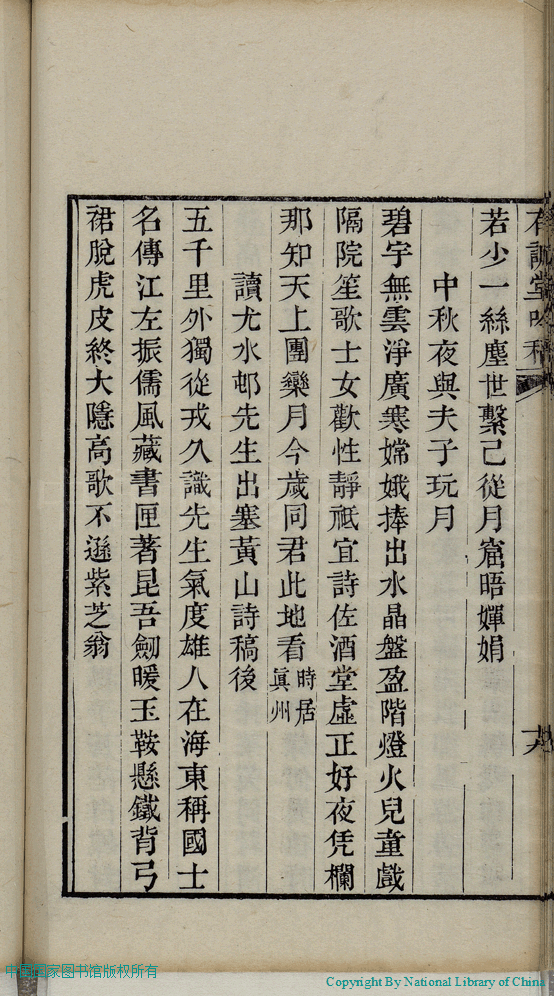 若少一絲塵世繫己從月窟晤嬋娟
中秋夜與夫子玩月
碧宇無雲淨廣寒嫦娥捧出水晶盤盈階燈火兒童戲
隔院笙歌士女歡性靜祗宜詩佐酒堂虛正好夜凭欄
那知天上團欒月今歲同君此地看時居眞州
讀尤水邨先生出塞黃山詩稿後
五千里外獨從戎久識先生氣度雄人在海東稱國士
名傳江左振儒風藏書匣著昆吾劒暖玉鞍懸鐵背弓
裙脫虎皮終大隱高歌不遜紫芝翁
中国国家图书馆版权所有
Copyright By National Library of China